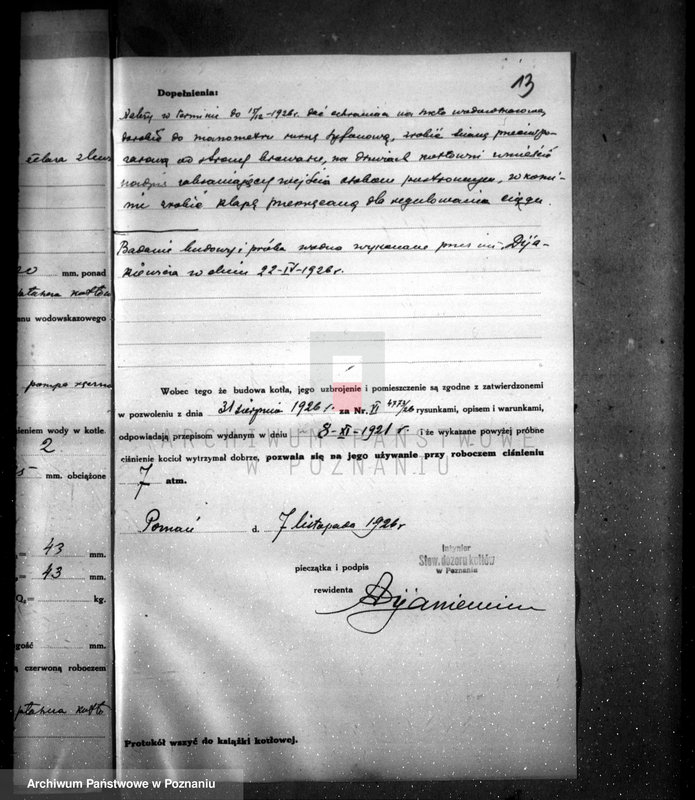 13
Dopełnienia:
Należy w terminie do 15/12-1926r. dać ochraniacz na szkło wodowskazowe,
dorobić do manometru rurę syfonową, zrobić ścianę przeciwpo-
żarową od strony browaru, na drzwiach kotłowni umieścić
napis zabraniający wejścia osobom postronnym, w komi-
nie zrobić klapę do regulowania ciągu.
Badanie budowy i próba wodna wykonane przez inż. Dija-
kiewicza w dniu 22-IV-1926r.
Wobec tego że budowa kotła, jego uzbrojenie i pomieszczenie są zgodne z zatwierdzonemi
w pozwoleniu z dnia 31 sierpnia 1926 r. za Nr. VI rysunkami, opisem i warunkami,
odpowiadają przepisom wydanym w dniu 8-XI-1921 r. i że wykazane powyżej próbne
ciśnienie kocioł wytrzymał dobrze, pozwala się na jego używanie przy roboczem ciśnieniu
7 atm.
Poznań d. 7 listopada 1926r
pieczątka i podpis
rewidenta
Inżynier
Stow. dozoru kotłów
w Poznaniu
Protokół wszyć do książki kotłowej.
mm. ponad
anu wodowskazowego
pompa ręczna
nieniem wody w kotle.
2
mm. obciążone
43 mm.
43 mm.
kg.
gość mm.
ą czerwoną roboczem
ARCHIWUM PAŃSTWOWE
W POZNANIU
Archiwum Państwowe w Poznaniu